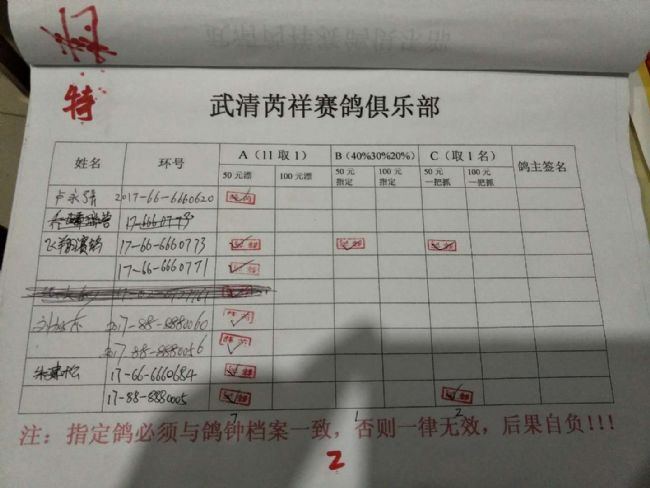 特
武清芮祥赛鸽俱乐部
姓名 环号 A（11取1） B（40%30%20%） C（取1名） 鸽主签名
50元漂 100元漂 50元指定 100元指定 50元一把抓 100元一把抓
2017-66-6660620
17-6660773
飞翔赛鸽 17-66-6660773
17-66-6660771
2017-88-8880060
2017-88-8880056
17-66-6660684
17-88-8880005
7 1 2
注：指定鸽必须与鸽钟档案一致，否则一律无效，后果自负!!!
2